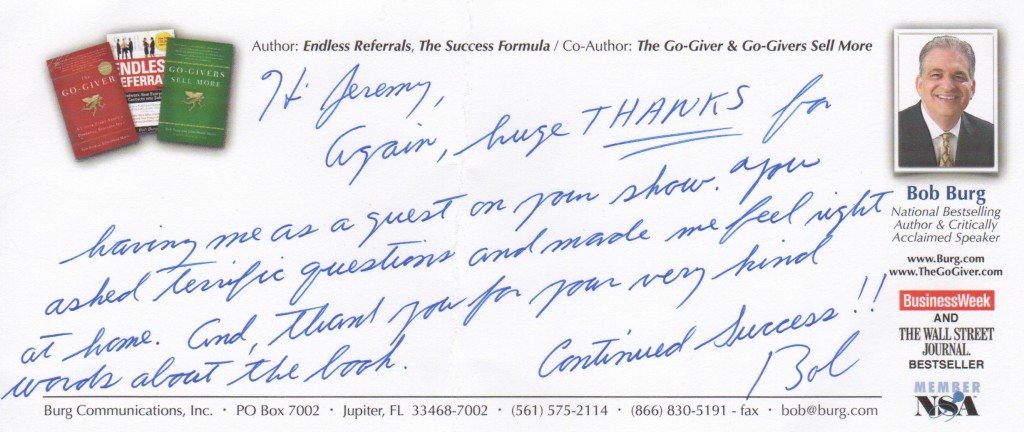 Author: Endless Referrals, The Success Formula / Co-Author: The Go-Giver & Go-Givers Sell More
THE
GO-GIVER
ENDLESS
REFERRA
GO-GIVERS
SELL MORE
Hi Jeremy,
Again, huge THANKS for
having me as a guest on your show. You
asked terrific questions and made me feel right
at home. And, thank you for your very kind
words about the book.
Continued Success!!
Bob
Bob Burg
National Bestselling
Author & Critically
Acclaimed Speaker
www.Burg.com
www.TheGoGiver.com
BusinessWeek
AND
THE WALL STREET
JOURNAL.
BESTSELLER
MEMBER
NSA
Burg Communications, Inc. • PO Box 7002 • Jupiter, FL 33468-7002 • (561) 575-2114 • (866) 830-5191 - fax • bob@burg.com